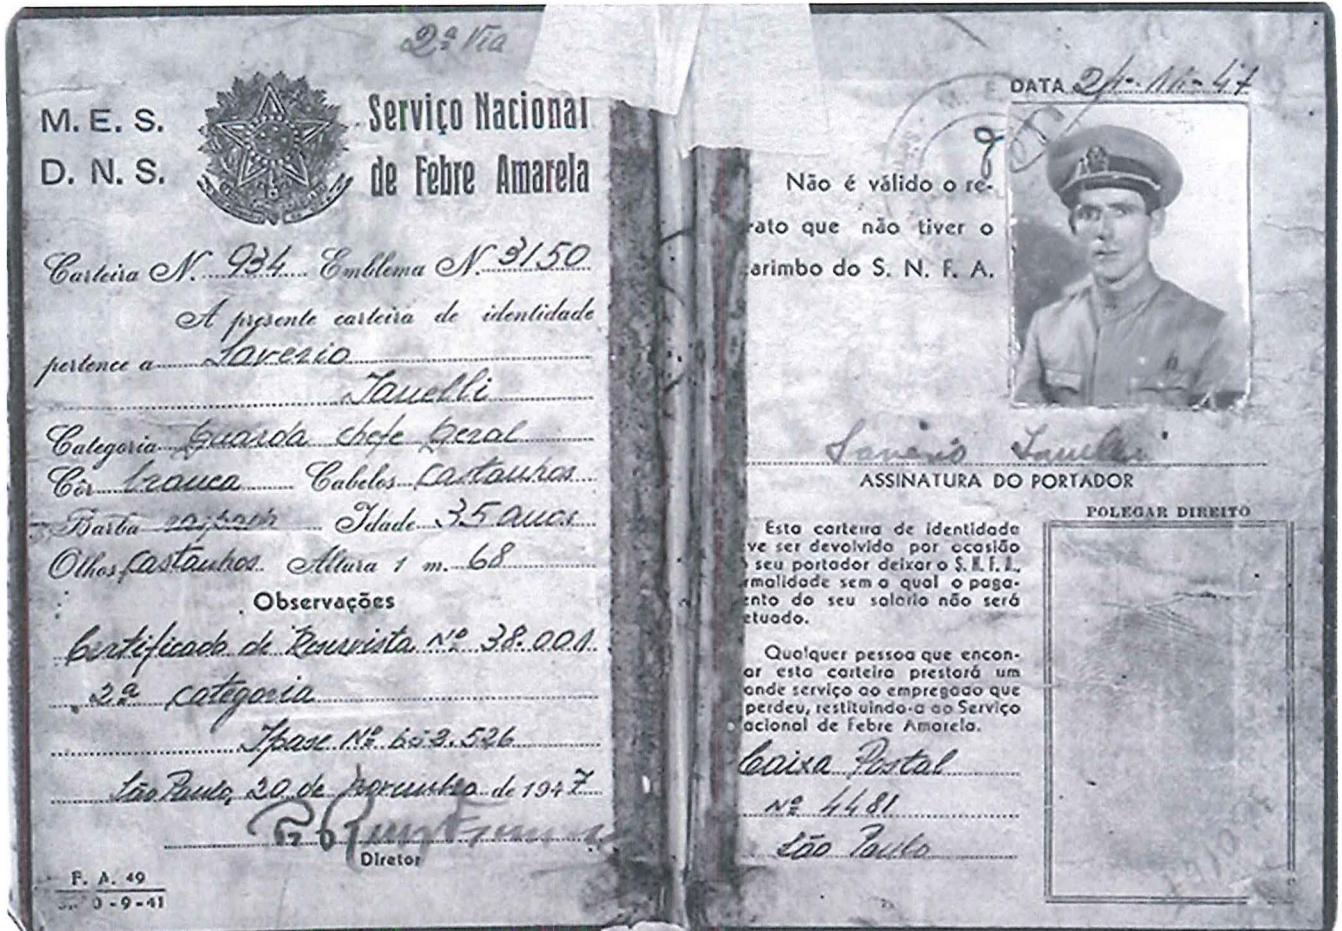 2ª Via
M. E. S.
D. N. S.
Serviço Nacional
de Febre Amarela
Carteira N. 934 Emblema N. 3150
A presente carteira de identidade
pertence a Saverio
Ianelli
Categoria Guarda chefe Geral
Côr branca Cabelos castanhos
Barba raspada Idade 35 anos
Olhos castanhos Altura 1 m. 68
Observações
Certificado de Reservista Nº 38.001
2ª categoria
Ipase Nº
São Paulo, 20 de novembro de 1947
Diretor
F. A. 49
0-9-41
DATA 24-11-47
Não é válido o re-
rato que não tiver o
arimbo do S. N. F. A.
Saverio Ianelli
ASSINATURA DO PORTADOR
POLEGAR DIREITO
Esta carteira de identidade
ve ser devolvida por ocasião
seu portador deixar o S. N. F. A.,
rmalidade sem a qual o paga-
ento do seu salario não será
etuado.
Qualquer pessoa que encon-
ar esta carteira prestará um
ande serviço ao empregado que
perdeu, restituindo-a ao Serviço
acional de Febre Amarela.
Caixa Postal
Nº 4481
São Paulo